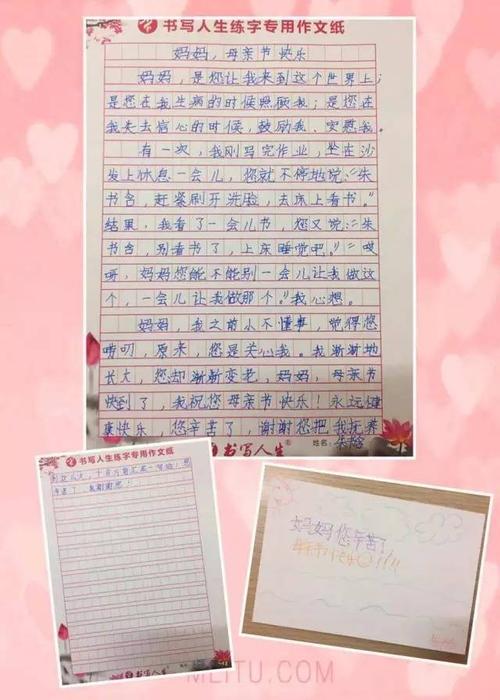 书写人生练字专用作文纸
妈妈，母亲节快乐
妈妈，是您让我来到这个世界上；
是您在我生病的时候照顾我；是您在
我失去信心的时候，鼓励我、安慰我。
有一次，我刚写完作业，坐在沙
发上休息一会儿，您就不停地说：“朱
书含，赶紧刷牙洗脸，去床上看书。”
结果，我看了一会儿书，您又说：“朱
书含，别看书了，上床睡觉吧。”“哎
呀，妈妈您能不能别一会儿让我做这
个，一会儿让我做那个。”我心想。
妈妈，我之前小不懂事，觉得您
唠叨，原来，您是关心我。我渐渐地
长大，您却渐渐变老，妈妈，母亲节
快到了，我祝您母亲节快乐！永远健
康快乐，您辛苦了，谢谢您把我抚养
书写人生
姓名：朱
书写人生练字专用作文纸
到这么大，十
了，我谢谢您！
书写人生
妈妈您辛苦了
母亲节快乐!!!!
MEITU.COM